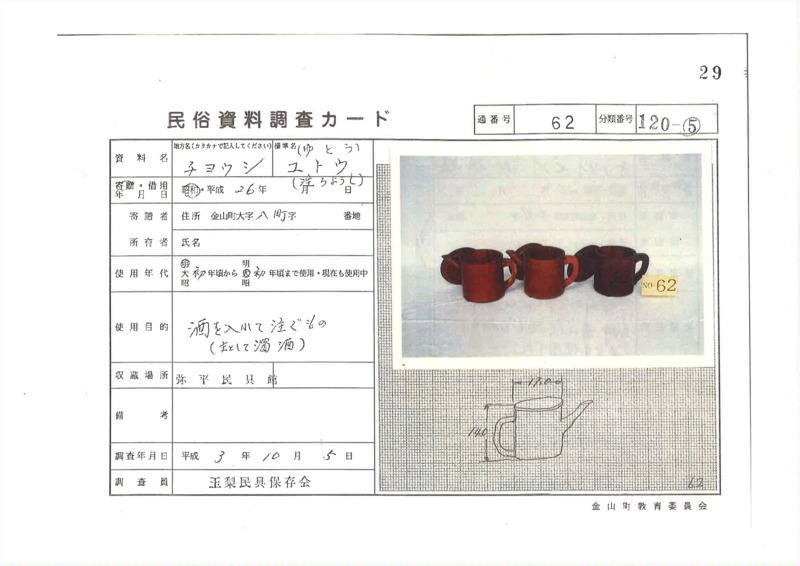 29
民俗資料調査カード
通番号 62 分類番号 120-⑤
資料名 地方名(カタカナで記入してください) チヨウシ 標準名 (ゆとう) ユトウ
寄贈・借用年月日 昭和・平成 26年 月 日
寄贈者 住所 金山町大字八町字 番地
所有者 氏名
使用年代 明大昭 初年頃から 明大昭 初年頃まで使用・現在も使用中
使用目的 酒を入れて注ぐもの
(主として濁酒)
収蔵場所 弥平民具館
備考
調査年月日 平成 3年 10月 5日
調査員 玉梨民具保存会
NO-62
17.0
14.0
62
金山町教育委員会